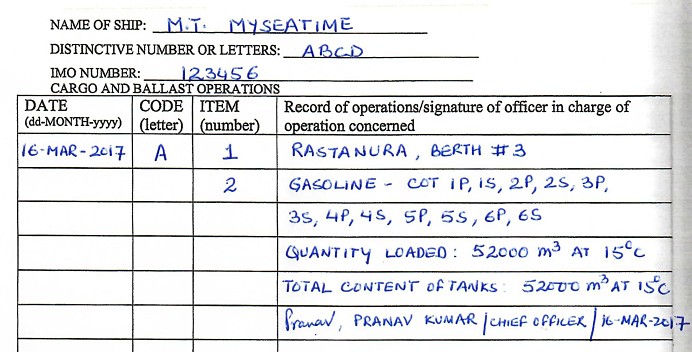 NAME OF SHIP: M.T. MYSEATIME
DISTINCTIVE NUMBER OR LETTERS: ABCD
IMO NUMBER: 123456
CARGO AND BALLAST OPERATIONS
DATE CODE ITEM Record of operations/signature of officer in charge of
(dd-MONTH-yyyy) (letter) (number) operation concerned
16-MAR-2017 A 1 RASTANURA, BERTH #3
2 GASOLINE - COT 1P, 1S, 2P, 2S, 3P,
3S, 4P, 4S, 5P, 5S, 6P, 6S
QUANTITY LOADED: 52000 m³ AT 15°C
TOTAL CONTENT OF TANKS: 52000 m³ AT 15°C
Pranav, PRANAV KUMAR / CHIEF OFFICER / 16-MAR-2017